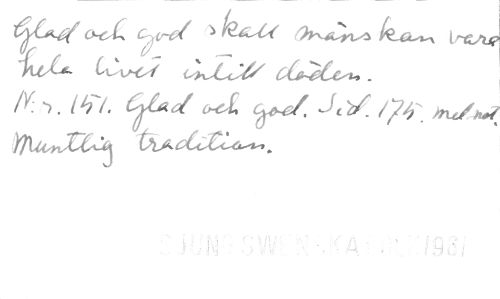 Glad och god skall mänskan vara
hela livet intill döden.
N:r. 151. Glad och god. Sid. 175. med not.
Muntlig tradition.
SJUNG SWENSKA FOLK 1981